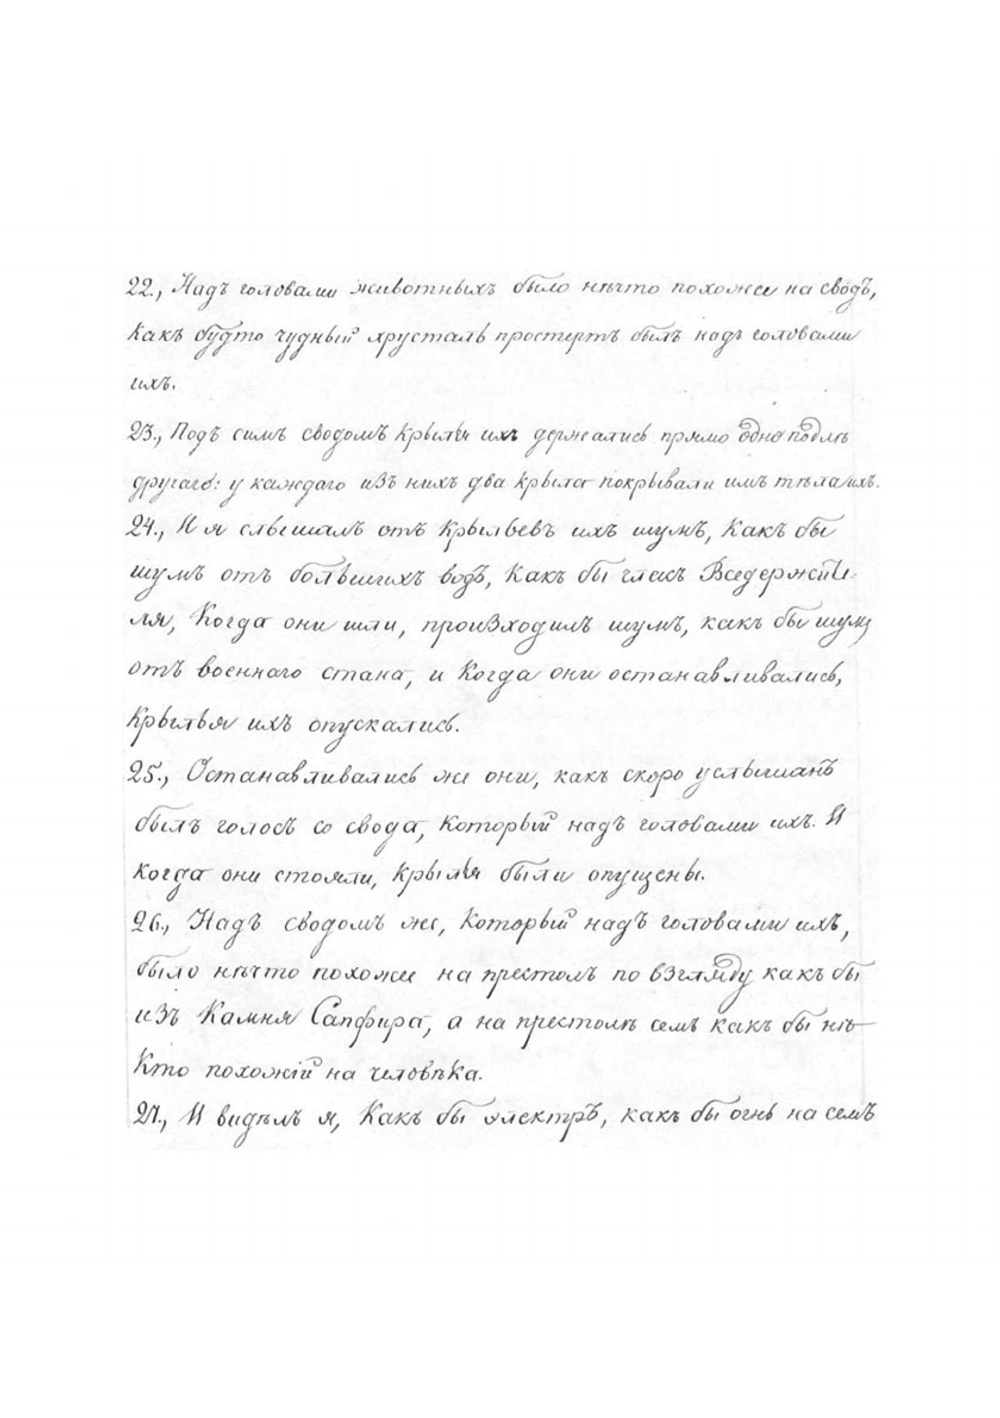 22., Надъ головами животныхъ было нѣчто похожее на сводъ,
какъ будто чудный хрусталь простертъ былъ надъ головами
ихъ.
23., Подъ симъ сводомъ крылья ихъ держались прямо одно подлѣ
другаго: у каждаго изъ нихъ два крыла покрывали имъ тѣла ихъ.
24., И я слышалъ отъ крыльевъ ихъ шумъ, какъ бы
шумъ отъ большихъ водъ, какъ бы гласъ Вседержите-
ля, Когда они шли, произходилъ шумъ, какъ бы шумъ
отъ военнаго стана, и когда они останавливались,
крылья ихъ опускались.
25., Останавливались же они, какъ скоро услышанъ
былъ голосъ со свода, который надъ головами ихъ. И
когда они стояли, крылья были опущены.
26., Надъ сводомъ же, который надъ головами ихъ,
было нѣчто похожее на престолъ по взгляду какъ бы
изъ Камня Сапфира, а на престолѣ семъ какъ бы нѣ-
кто похожій на человѣка.
27., И видѣлъ я, Какъ бы электръ, какъ бы огнь на семъ